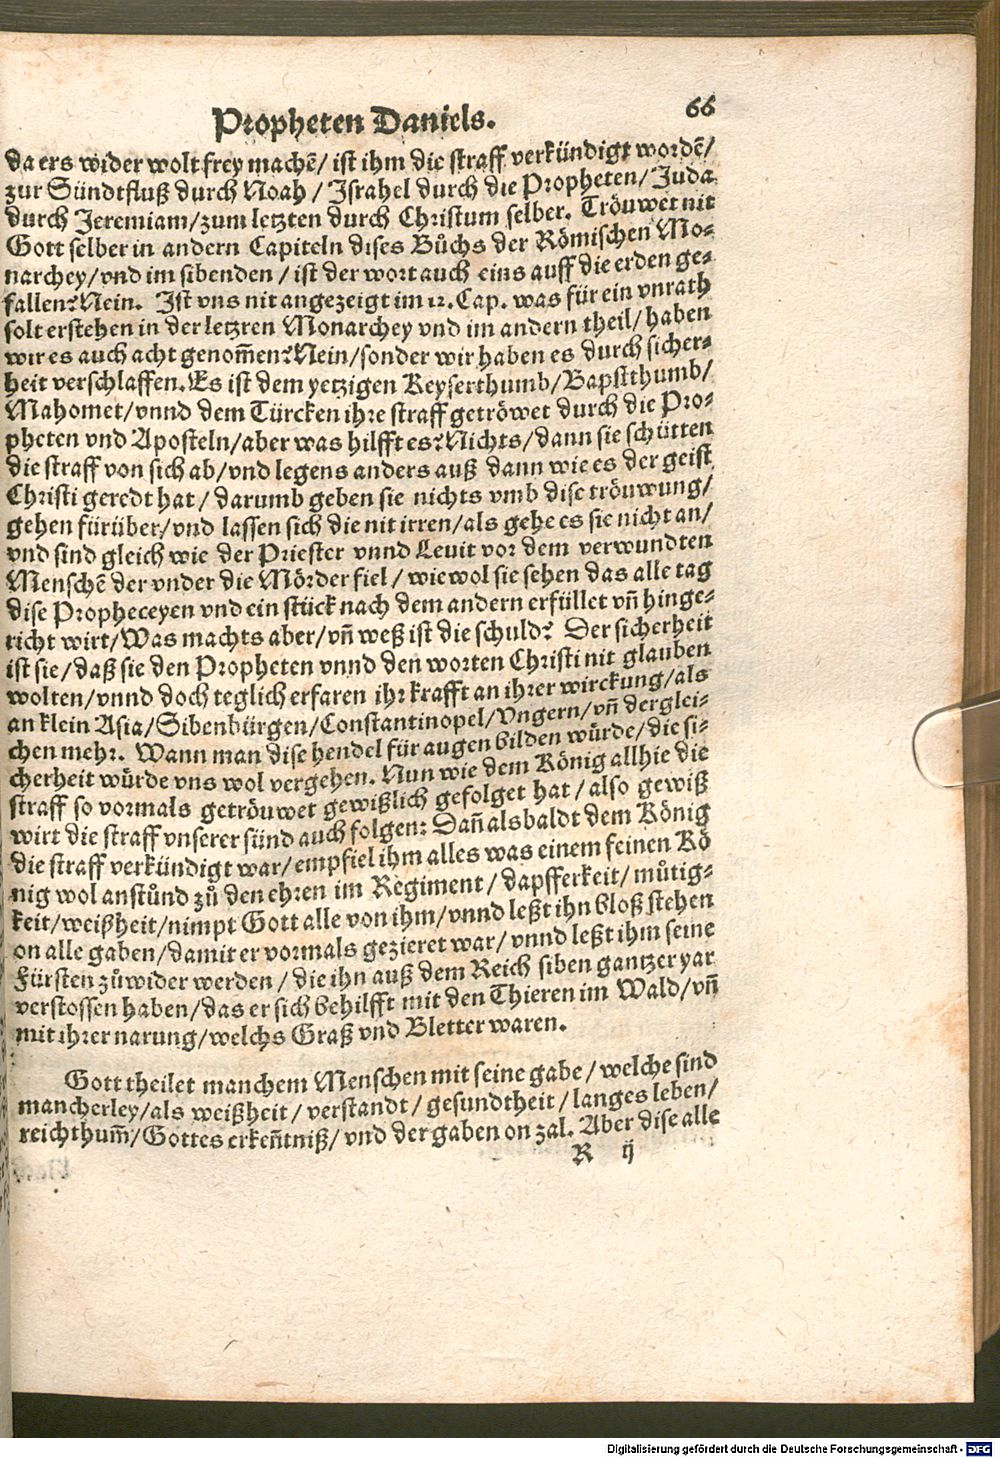 Propheten Daniels. 66
da ers wider wolt frey machẽ/ ist ihm die straff verkündigt wordẽ/
zur Sündtfluß durch Noah/ Israhel durch die Propheten/ Juda
durch Jeremiam/ zum letzten durch Christum selber. Tröuwet nit
Gott selber in andern Capiteln dises Bůchs der Römischen Mo⸗
narchey/ vnd im sibenden/ ist der wort auch eins auff die erden ge⸗
fallen? Nein. Ist vns nit angezeigt im 12. Cap. was für ein vnrath
solt erstehen in der letzren Monarchey vnd im andern theil/ haben
wir es auch acht genom̃en? Nein/ sonder wir haben es durch sicher⸗
heit verschlaffen. Es ist dem yetzigen Keyserthumb/ Bapstthumb/
Mahomet/ vnnd dem Türcken ihre straff getröwet durch die Pro⸗
pheten vnd Aposteln/ aber was hilfft es? Nichts/ dann sie schütten
die straff von sich ab/ vnd legens anders auß dann wie es der geist
Christi geredt hat/ darumb geben sie nichts vmb dise tröuwung/
gehen fürüber/ vnd lassen sich die nit irren/ als gehe es sie nicht an/
vnd sind gleich wie der Priester vnnd Levit vor dem verwundten
Menschẽ der vnder die Mörder fiel/ wiewol sie sehen das alle tag
dise Propheceyen vnd ein stück nach dem andern erfüllet vñ hinge⸗
richt wirt/ Was machts aber/ vñ weß ist die schuld? Der sicherheit
ist sie/ daß sie den Propheten vnnd den worten Christi nit glauben
wolten/ vnnd doch teglich erfaren ihr krafft an ihrer wirckung/ als
an klein Asia/ Sibenbürgen/ Constantinopel/ Vngern/ vñ derglei⸗
chen mehr. Wann man dise hendel für augen bilden würde/ die si⸗
cherheit würde vns wol vergehen. Nun wie dem König allhie die
straff so vormals getröuwet gewißlich gefolget hat/ also gewiß
wirt die straff vnserer sünd auch folgen: Dañ alsbaldt dem König
die straff verkündigt war/ empfiel ihm alles was einem feinen Kö
nig wol anstůnd zů den ehren im Regiment/ dapfferkeit/ můtig⸗
keit/ weißheit/ nimpt Gott alle von ihm/ vnnd leßt ihn bloß stehen
on alle gaben/ damit er vormals gezieret war/ vnnd leßt ihm seine
Fürsten zůwider werden/ die ihn auß dem Reich siben gantzer yar
verstossen haben/ das er sich behilfft mit den Thieren im Wald/ vñ
mit ihrer narung/ welchs Graß vnd Bletter waren.
Gott theilet manchem Menschen mit seine gabe/ welche sind
mancherley/ als weißheit/ verstandt/ gesundtheit/ langes leben/
reichthum̃/ Gottes erkeñtniß/ vnd der gaben on zal. Aber dise alle
R ij
Digitalisierung gefördert durch die Deutsche Forschungsgemeinschaft - DFG